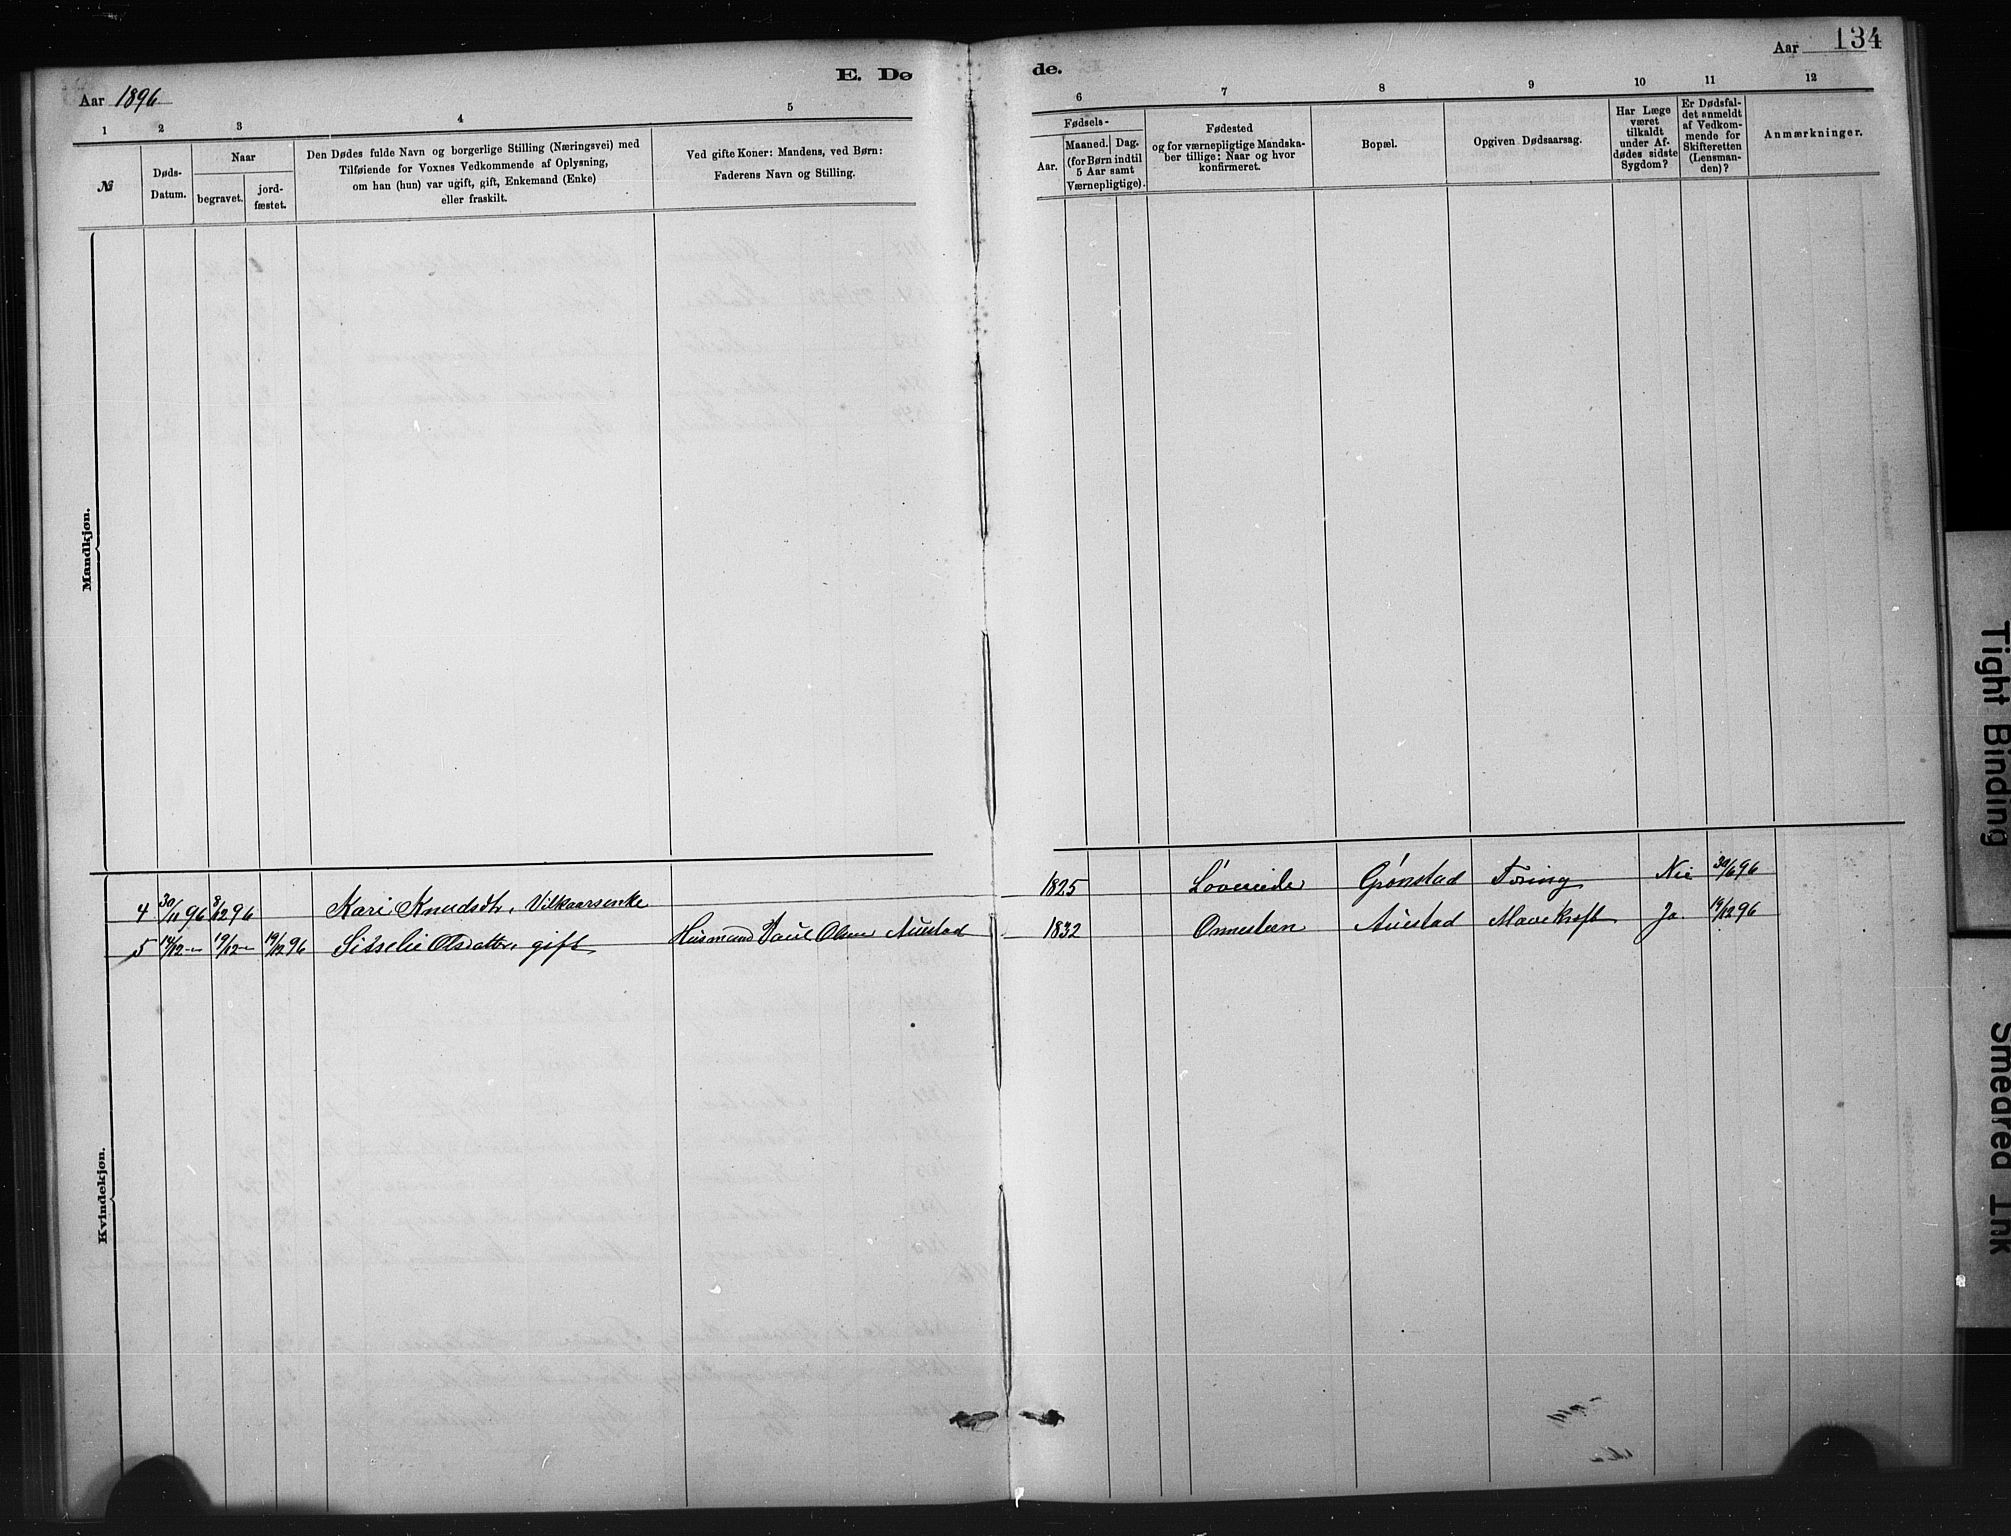 E. Dø de.
Aar 1896
Aar 134
1 2 3 4 5 6 7 8 9 10 11 12
№
Døds-Datum.
Naar
begravet.
jord-fæstet.
Den Dødes fulde Navn og borgerlige Stilling (Næringsvei) med
Tilføiende for Voxnes Vedkommende af Oplysning,
om han (hun) var ugift, gift, Enkemand (Enke)
eller fraskilt.
Ved gifte Koner: Mandens, ved Børn:
Faderens Navn og Stilling.
Fødsels-
Aar.
Maaned. Dag.
(for Børn indtil
5 Aar samt
Værnepligtige).
Fødested
og for værnepligtige Mandska-
ber tillige: Naar og hvor
konfirmeret.
Bopæl.
Opgiven Dødsaarsag.
Har Læge
været
tilkaldt
under Af-
dødes sidste
Sygdom?
Er Dødsfal-
det anmeldt
af Vedkom-
mende for
Skifteretten
(Lensman-
den)?
Anmærkninger.
Mandkjøn.
Kvindekjøn.
4 30/11 96 8/12 96 Kari Knudsdtr, Vilkaarsenke 1825 Grønstad Tæring Nei 30/6 96
5 14/12 — 19/12 — 19/12 96 Sidselie Olsdatter, gift Husmand Paul Olsen Auestad 1832 Ornesteen Auestad Mavekræft Ja. 14/12 96
Tight Binding
Smeared Ink